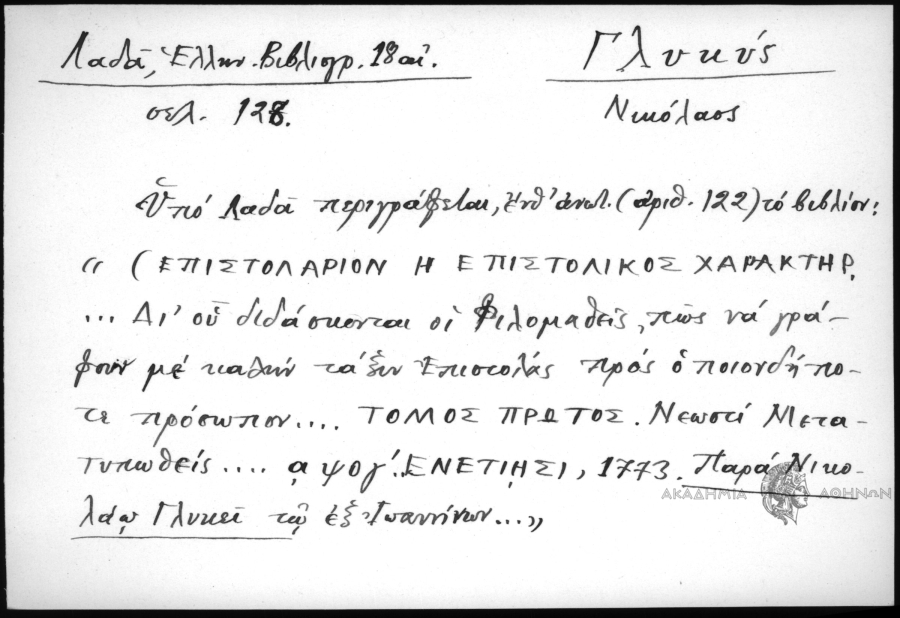 Λαδᾶ, Ἑλλην. Βιβλιογρ. 18 αἰ.
Γλυκύς
σελ. 128.
Νικόλαος
Ὑπό Λαδᾶ περιγράφεται, ἐνθ' ἀνωτ. (ἀριθ. 122) τό βιβλίον:
“ (ΕΠΙΣΤΟΛΑΡΙΟΝ Η ΕΠΙΣΤΟΛΙΚΟΣ ΧΑΡΑΚΤΗΡ.
... Δι' οὗ διδάσκονται οἱ Φιλομαθεῖς, πῶς νά γρά-
φουν μέ καλήν τάξιν Ἐπιστολάς πρός ὁποιονδήπο-
τε πρόσωπον.... ΤΟΜΟΣ ΠΡΩΤΟΣ. Νεωστί Μετα-
τυπωθείς .... α ψογ'. ΕΝΕΤΙΗΣΙ, 1773. Παρά Νικο-
ΑΚΑΔΗΜΙΑ ΑΘΗΝΩΝ
λάῳ Γλυκεῖ τῷ ἐξ Ἰωαννίνων...„